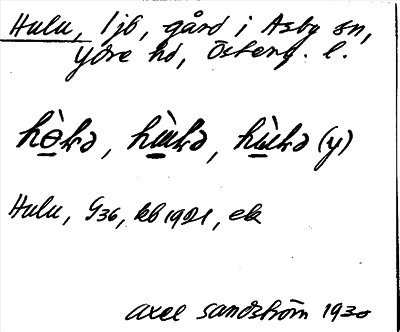 Hulu, 1 jb, gård i Asby sn,
Ydre hd, Österg. l.
hò̱kə, hù̱kə, hù̱kə (y)
Hulu, G36, kb 1921, ek
Axel Sandström 1930